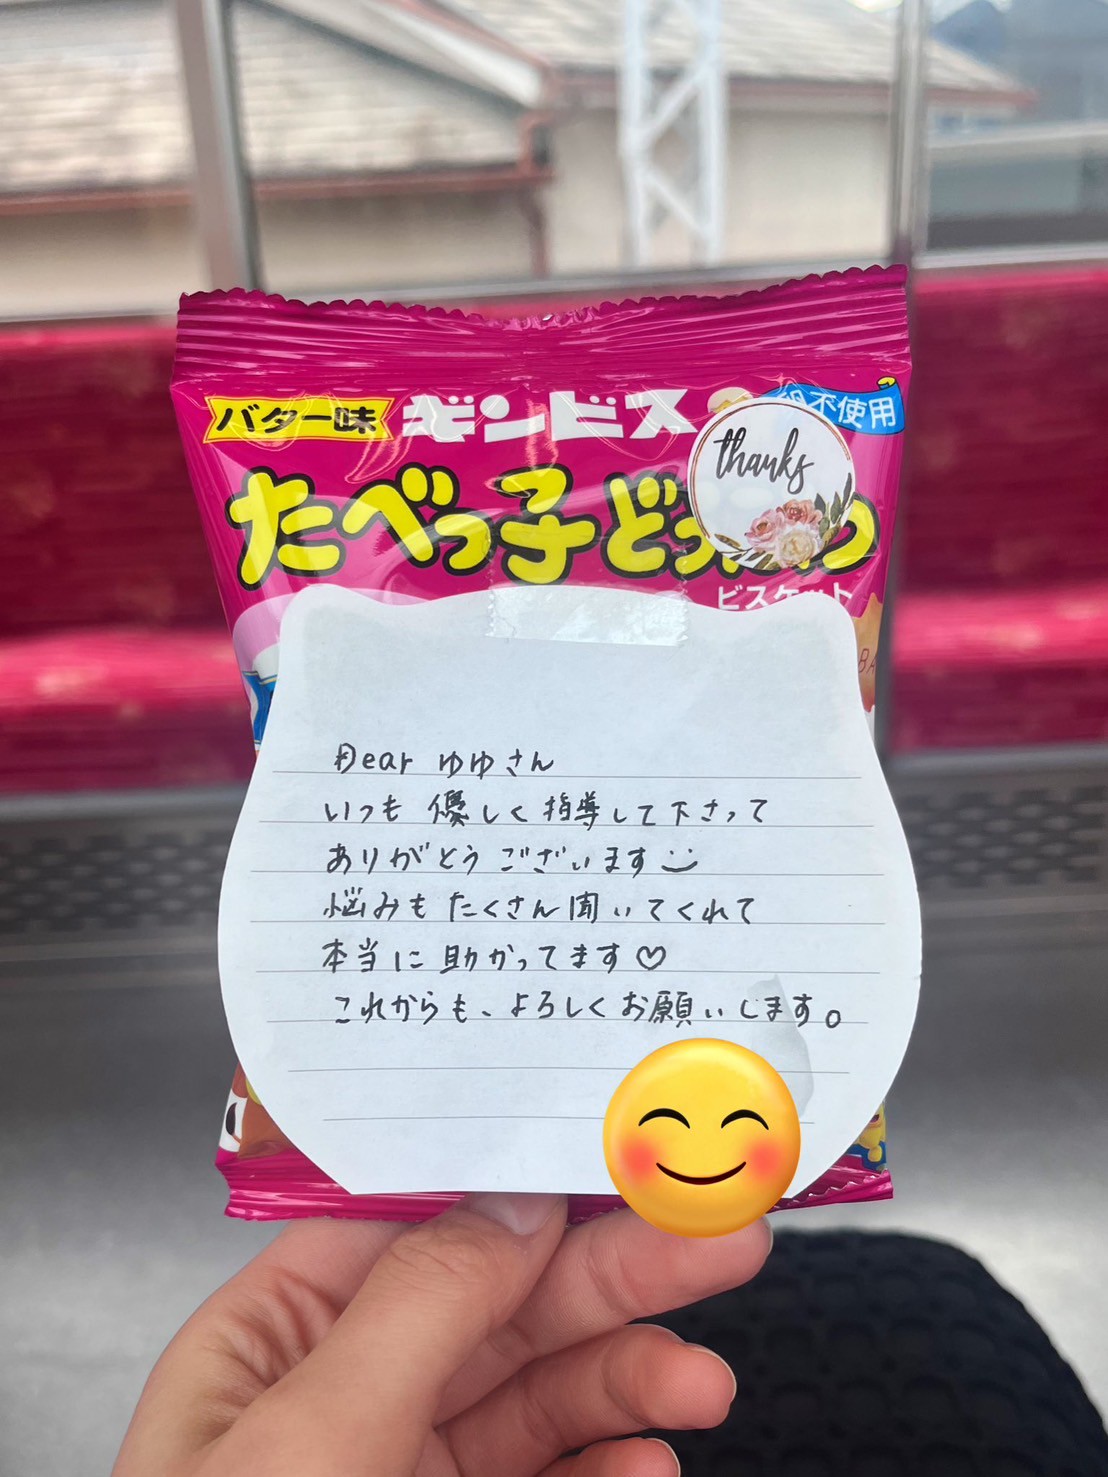 バター味
ギンビス
不使用
thanks
たべっ子ど
ビスケット
BA
Dear ゆゆさん
いつも 優しく指導して下さって
ありがとうございます
悩みもたくさん聞いてくれて
本当に助かってます♡
これからも、よろしくお願いします。